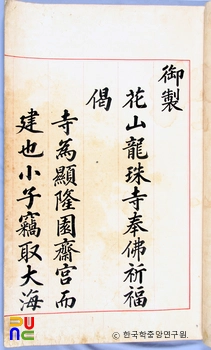 御製
花山龍珠寺奉佛祈福
偈
寺為顯隆園齋宮而
建也小子竊取大海
PUNC
© 한국학중앙연구원